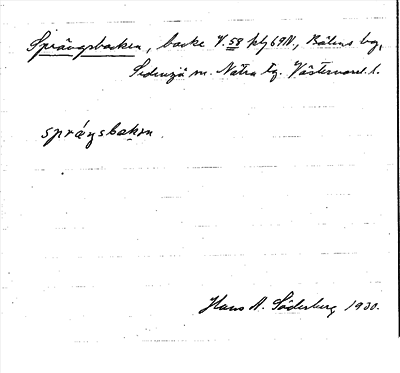 Språngsbacken, backe V. 58 klj 69N, Bälens by,
Sidensjö sn. Nätra tg. Västernorrl. l.
språŋsbakən.
Hans A. Söderberg 1930.